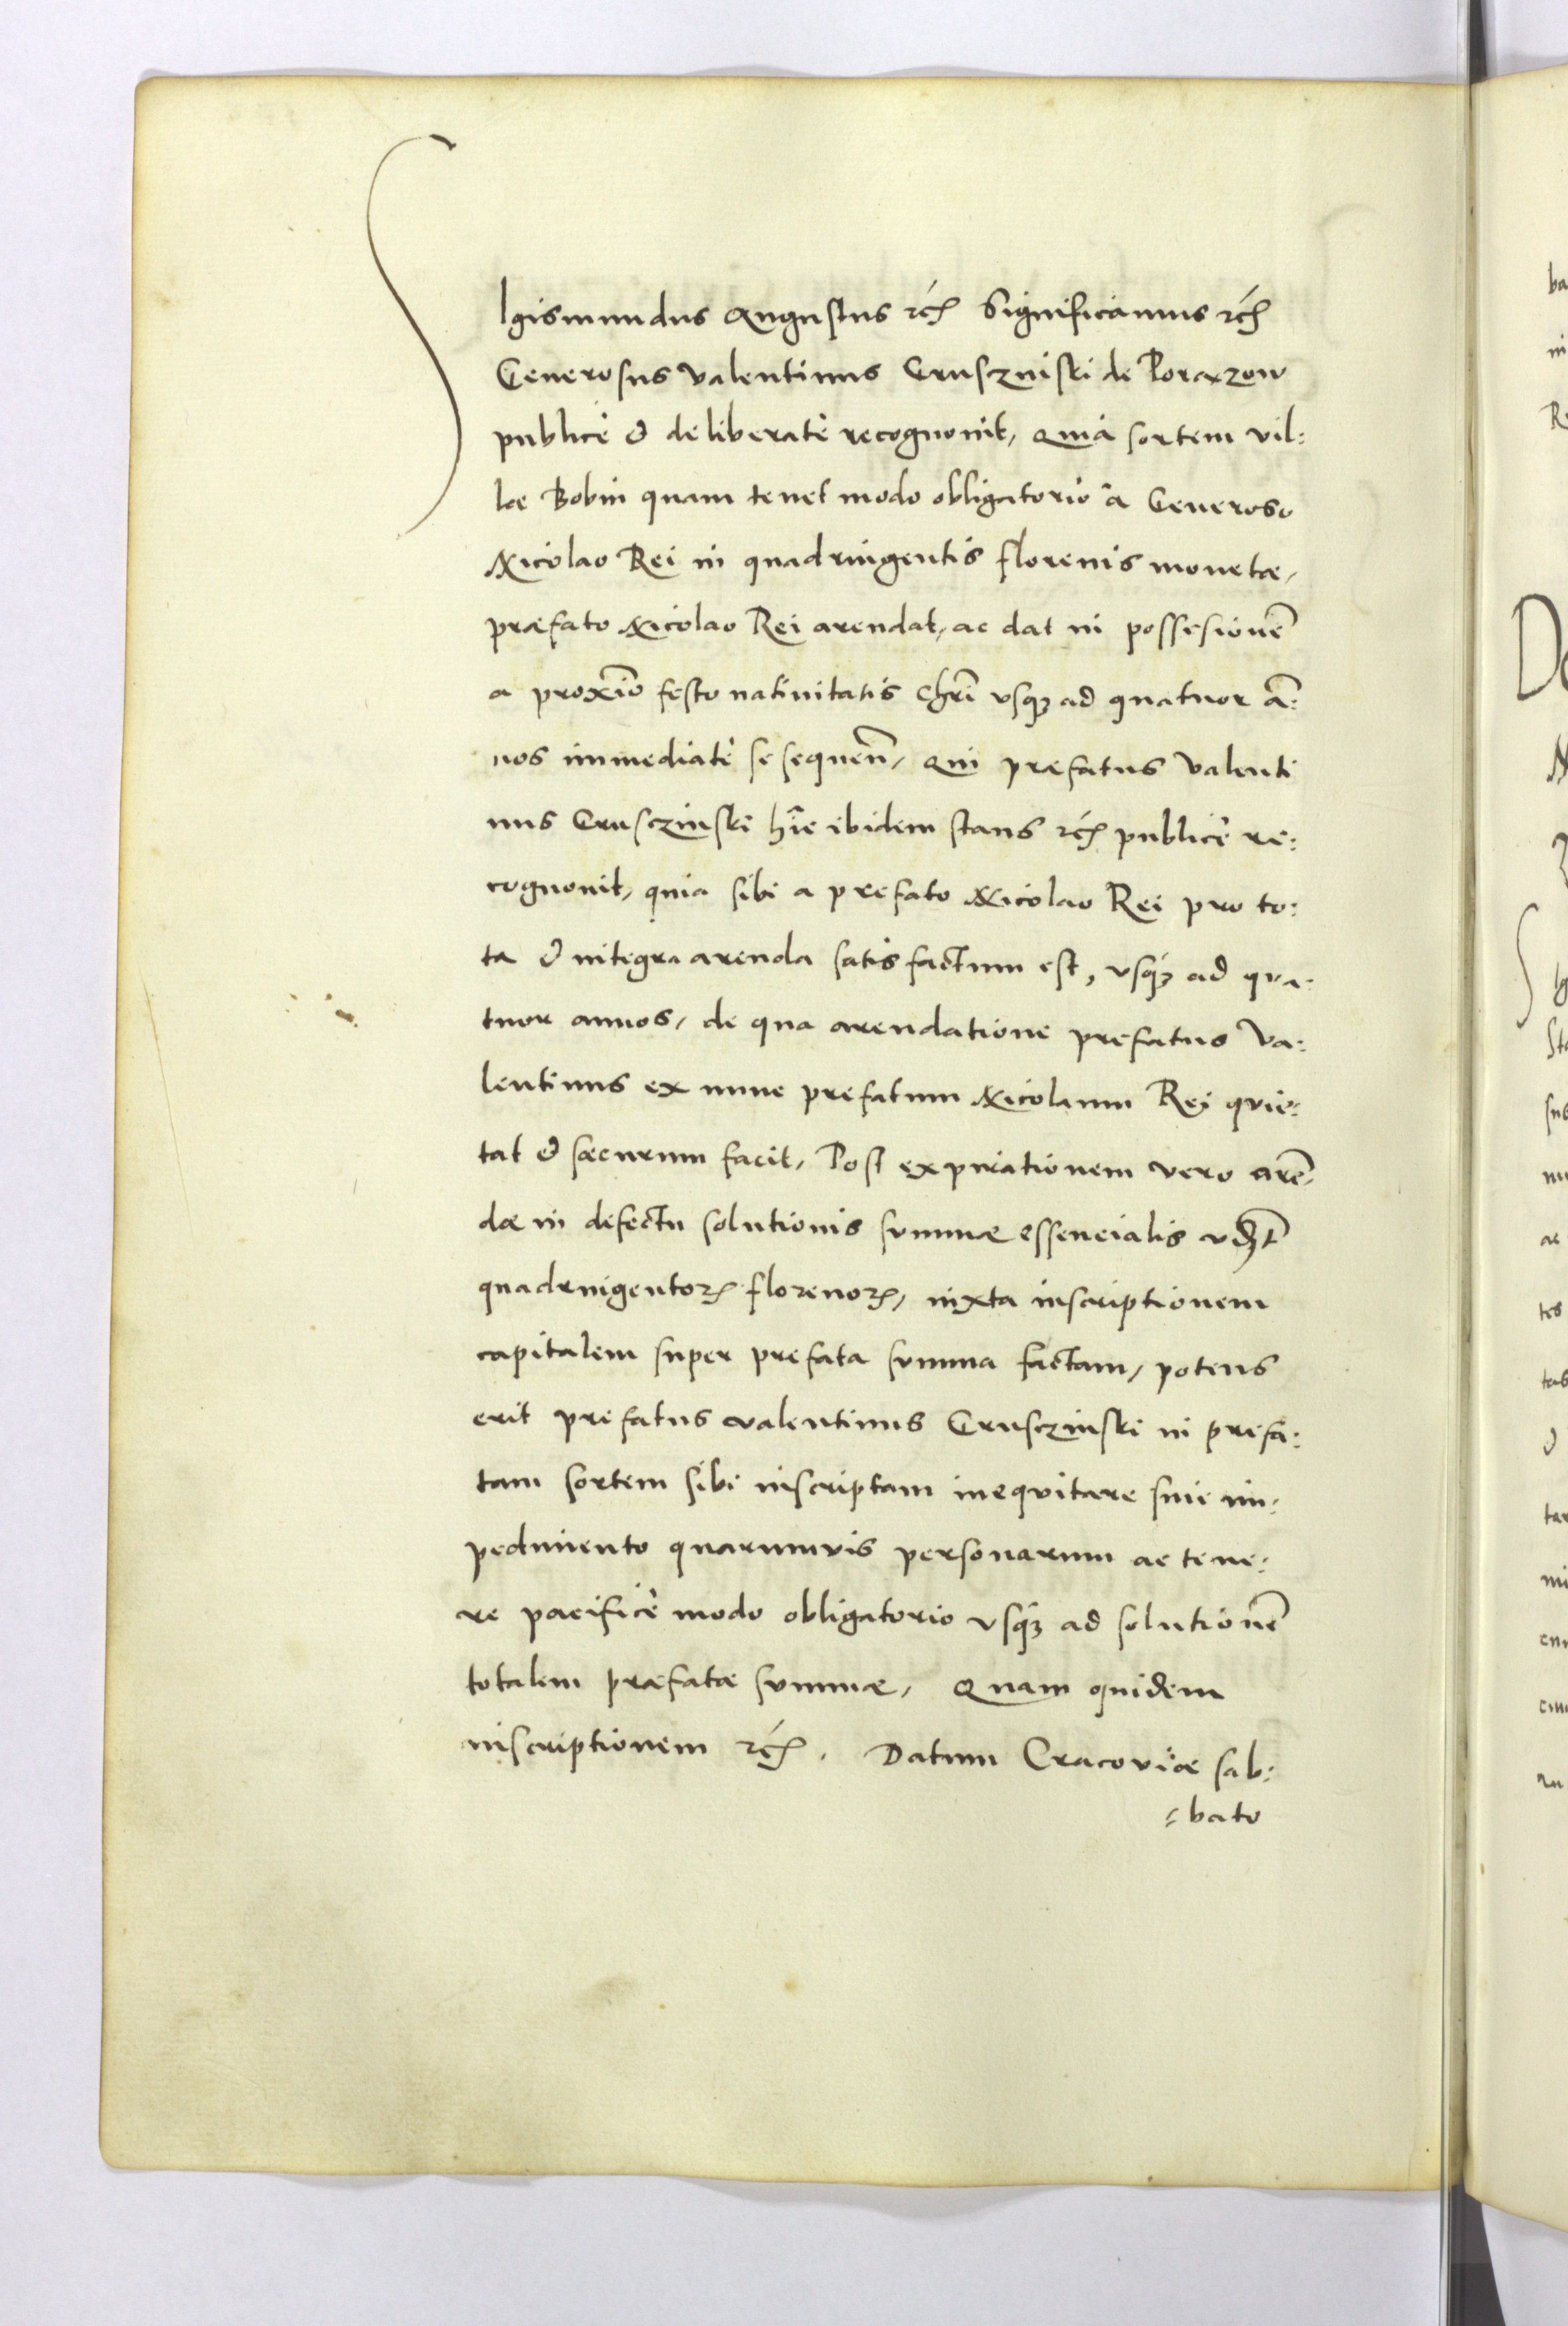 SIgismundus Augustus etc̃ Significamus etc̃
Generosus Valentinus Gruscziński de Poraxzow
publicè & deliberatè recognouit, Quia sortem vil:
læ Bobin quam tenet modo obligatorio â Generoso
Nicolao Rei in quadringentis florenis monetæ,
præfato Nicolao Rei arendat, ac dat in possesionẽ
a proxĩo festo natiuitatis Chrĩ vsqꝫ ad quatuor ã:
nos immediatè se sequen̄, Qui præfatus Valenti
nus Gruscziński hîc ibidem stans etc̃ publicè re:
cognouit, quia sibi a prefato Nicolao Rei pro to:
ta & integra arenda satisfactum est, vsqꝫ ad qua:
tuor annos, de qua arendatione prefatus Va:
lentinus ex nunc prefatum Nicolaum Rei quie:
tat & sæcurum facit, Post expirationem vero arẽ:
dæ in defectu solutionis summæ essencialis vdꝫt
quadringentoꝝ florenoꝝ, iuxta inscriptionem
capitalem super prefata summa factam, potens
erit prefatus Valentinus Gruscziński in prefa:
tam sortem sibi inscriptam inequitare sine im:
pedimento quarumvis personarum ac tene:
re pacificè modo obligatorio vsqꝫ ad solutionẽ
totalem præfatæ summæ, Quam quidem
inscriptionem etc̃. Datum Cracoviæ sab:
:bato